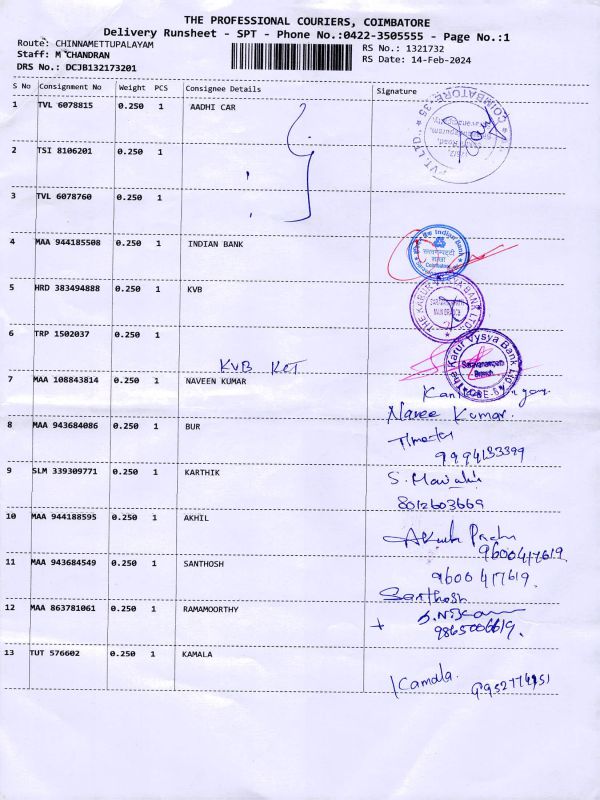 THE PROFESSIONAL COURIERS, COIMBATORE
Delivery Runsheet - SPT - Phone No.:0422-3505555 - Page No.:1
Route: CHINNAMETTUPALAYAM
RS No.: 1321732
Staff: M CHANDRAN
RS Date: 14-Feb-2024
DRS No.: DCJB132173201
S No Consignment No Weight PCS Consignee Details Signature
1 TVL 6078815 0.250 1 AADHI CAR
COIMBATORE-35
PVT. LTD.
2 TSI 8106201 0.250 1
3 TVL 6078760 0.250 1
4 MAA 944185508 0.250 1 INDIAN BANK
Indian Bank
5 HRD 383494888 0.250 1 KVB
THE KARUR VYSYA BANK LTD
MAIN BRANCH
6 TRP 1502037 0.250 1
The Karur Vysya Bank Ltd
Saravanampatti
Branch
CBE-6
KVB KCT
7 MAA 108843814 0.250 1 NAVEEN KUMAR
Navee Kumar.
8 MAA 943684086 0.250 1 BUR
9994133399
9 SLM 339309771 0.250 1 KARTHIK
8012603669
10 MAA 944188595 0.250 1 AKHIL
9600417619
11 MAA 943684549 0.250 1 SANTHOSH
9600417619.
Santhosh
12 MAA 863781061 0.250 1 RAMAMOORTHY
9865006619.
13 TUT 576602 0.250 1 KAMALA
Kamala.